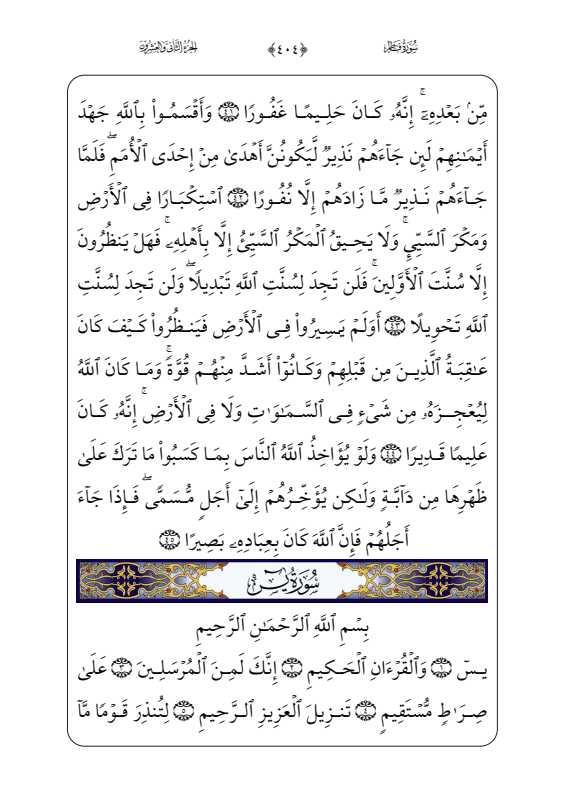 سُورَةُ فَاطِرٍ ﴿٤٠٤﴾ الجُزْءُ الثَّانِي وَالعِشْرُونَ
مِّنۢ بَعْدِهِۦٓۚ إِنَّهُۥ كَانَ حَلِيمًا غَفُورًا ٤١ وَأَقْسَمُوا۟ بِٱللَّهِ جَهْدَ
أَيْمَـٰنِهِمْ لَئِن جَآءَهُمْ نَذِيرٌ لَّيَكُونُنَّ أَهْدَىٰ مِنْ إِحْدَى ٱلْأُمَمِۖ فَلَمَّا
جَآءَهُمْ نَذِيرٌ مَّا زَادَهُمْ إِلَّا نُفُورًا ٤٢ ٱسْتِكْبَارًا فِى ٱلْأَرْضِ
وَمَكْرَ ٱلسَّيِّئِۚ وَلَا يَحِيقُ ٱلْمَكْرُ ٱلسَّيِّئُ إِلَّا بِأَهْلِهِۦۚ فَهَلْ يَنظُرُونَ
إِلَّا سُنَّتَ ٱلْأَوَّلِينَۚ فَلَن تَجِدَ لِسُنَّتِ ٱللَّهِ تَبْدِيلًاۖ وَلَن تَجِدَ لِسُنَّتِ
ٱللَّهِ تَحْوِيلًا ٤٣ أَوَلَمْ يَسِيرُوا۟ فِى ٱلْأَرْضِ فَيَنظُرُوا۟ كَيْفَ كَانَ
عَـٰقِبَةُ ٱلَّذِينَ مِن قَبْلِهِمْ وَكَانُوٓا۟ أَشَدَّ مِنْهُمْ قُوَّةًۚ وَمَا كَانَ ٱللَّهُ
لِيُعْجِزَهُۥ مِن شَىْءٍ فِى ٱلسَّمَـٰوَٰتِ وَلَا فِى ٱلْأَرْضِۚ إِنَّهُۥ كَانَ
عَلِيمًا قَدِيرًا ٤٤ وَلَوْ يُؤَاخِذُ ٱللَّهُ ٱلنَّاسَ بِمَا كَسَبُوا۟ مَا تَرَكَ عَلَىٰ
ظَهْرِهَا مِن دَآبَّةٍ وَلَـٰكِن يُؤَخِّرُهُمْ إِلَىٰٓ أَجَلٍ مُّسَمًّىۖ فَإِذَا جَآءَ
أَجَلُهُمْ فَإِنَّ ٱللَّهَ كَانَ بِعِبَادِهِۦ بَصِيرًا ٤٥
سُورَةُ يسٓ
بِسْمِ ٱللَّهِ ٱلرَّحْمَـٰنِ ٱلرَّحِيمِ
يسٓ ١ وَٱلْقُرْءَانِ ٱلْحَكِيمِ ٢ إِنَّكَ لَمِنَ ٱلْمُرْسَلِينَ ٣ عَلَىٰ
صِرَٰطٍ مُّسْتَقِيمٍ ٤ تَنزِيلَ ٱلْعَزِيزِ ٱلرَّحِيمِ ٥ لِتُنذِرَ قَوْمًا مَّآ